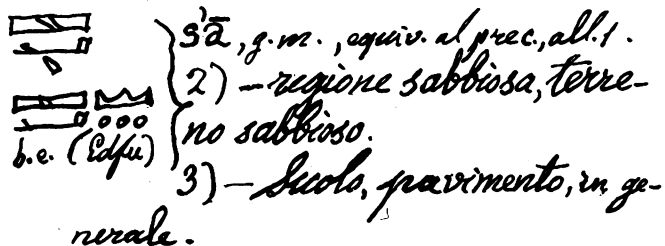 s'ā, g.m., equiv. al prec., all. 1.
2) – regione sabbiosa, terre-
no sabbioso.
b.e. (Edfu)
3) – Suolo, pavimento, in ge-
nerale.